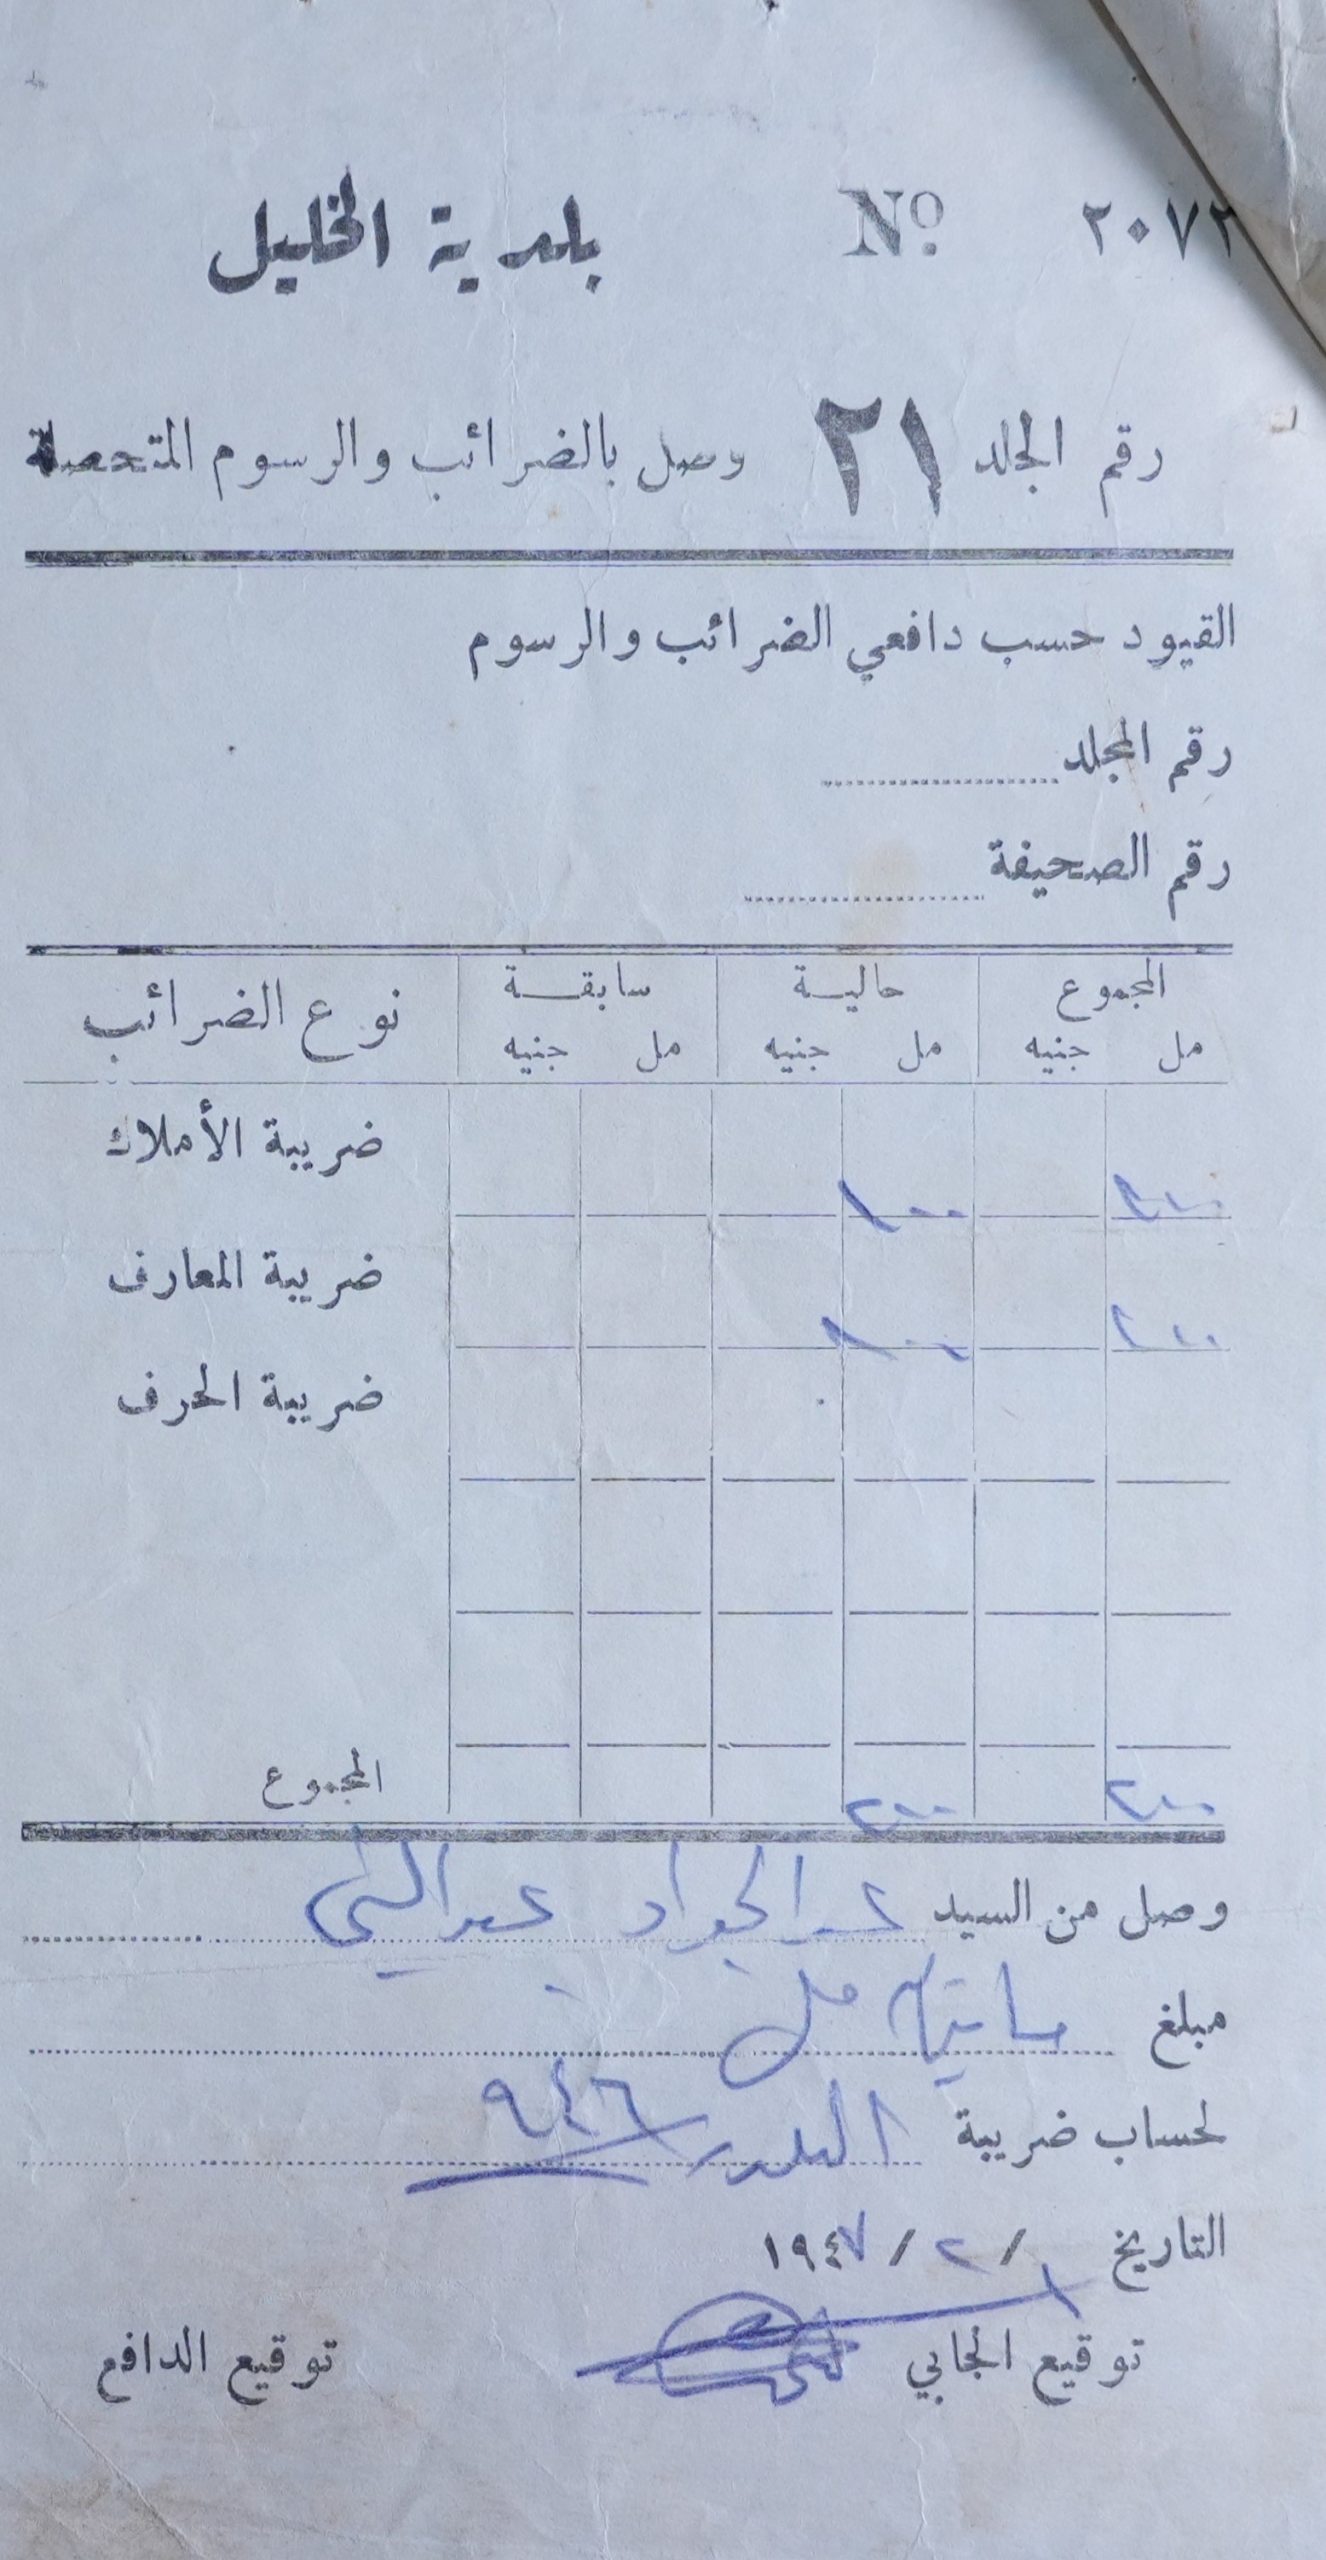 بلدية الخليل № ٢٠٧٢
رقم الجلد ٢١ وصل بالضرائب والرسوم المتحصلة
القيود حسب دافعي الضرائب والرسوم
رقم المجلد
رقم الصحيفة
المجموع حالية سابقة نوع الضرائب
مل جنيه مل جنيه مل جنيه
ضريبة الأملاك
١٠٠
ضريبة المعارف
١٠٠
ضريبة الحرف
المجموع
٢٠٠ ٢٠٠
وصل من السيد عبد الجواد عبد
مبلغ مايتان مل
لحساب ضريبة البلدية ٩٤٦
التاريخ ١ / ٢ / ١٩٤٧
توقيع الجابي توقيع الدافع